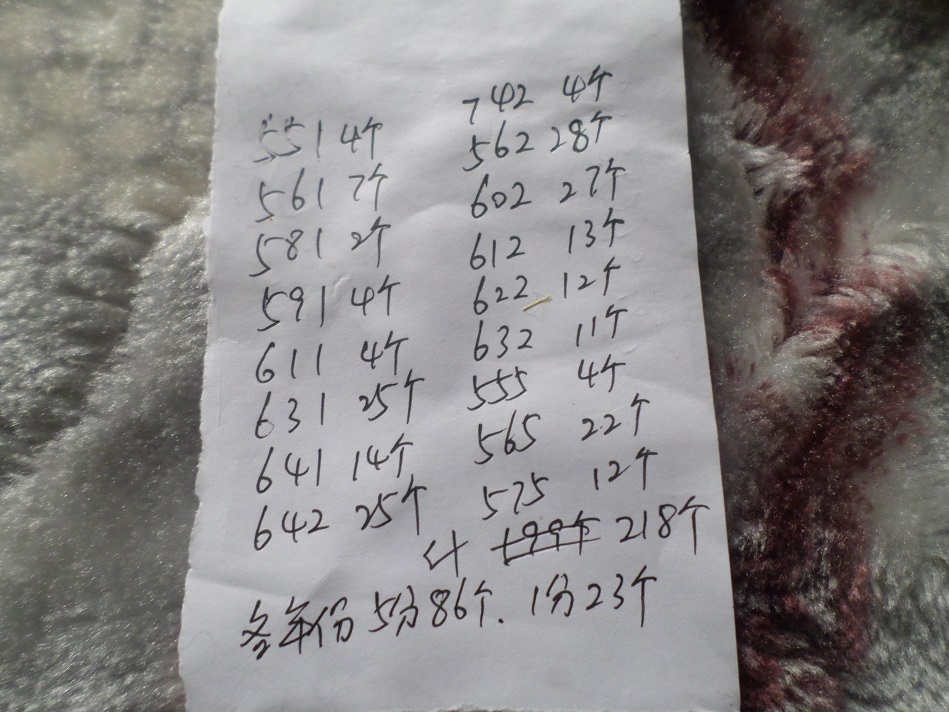 551 4个
561 7个
581 2个
591 4个
611 4个
631 25个
641 14个
642 25个
742 4个
562 28个
602 27个
612 13个
622 12个
632 11个
555 4个
565 22个
575 12个
计 199个 218个
各年份5分86个. 1分23个